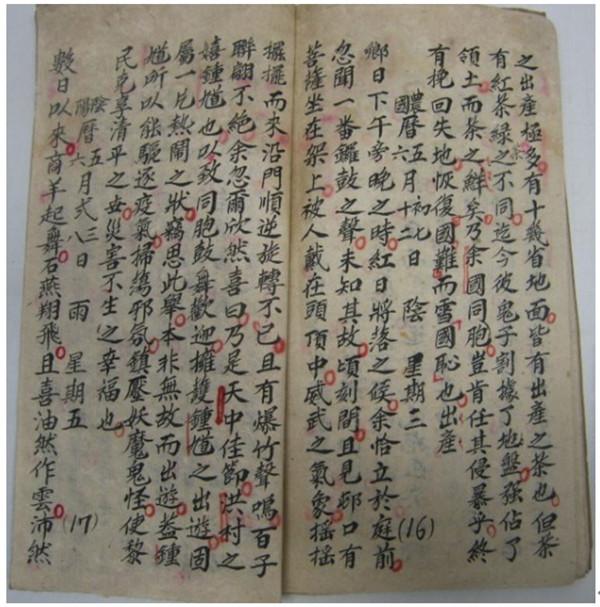 之出產極多有十幾省地面皆有出產之茶也但茶
有紅茶綠茶之不同迄今彼鬼子割據了地盤強佔了
領土而茶之鮮矣乃余國同胞豈肯任其侵暴乎終
有挽回失地恢復國難而雪國恥也出產
農曆五月初七日
國六月十二日 陰 星期三 (16)
鄉日下午旁晚之時紅日將落之候余恰立於庭前
忽聞一番鑼鼓之聲未知其故頃刻間且見邨口有
菩薩坐在架上被人戴在頭頂中威武之氣象搖搖
擺擺而來沿門順逆旋轉不已且有爆竹聲鳴百子
聯翩不絕余忽爾欣然喜曰乃是天中佳節洪村之
嬉鍾馗也以致同胞鼓舞歡迎擁護鍾馗之出遊固
屬一片熱鬧之狀竊思此舉本非無故而出遊蓋鍾
馗所以能驅逐疫氣掃蕩邪氛鎮壓妖魔鬼怪使黎
民克享清平之世災害不生之幸福也
陰陽曆五六月弍三八日 雨 星期五 (17)
數日以來商羊起舞石燕翔飛且喜油然作雲沛然